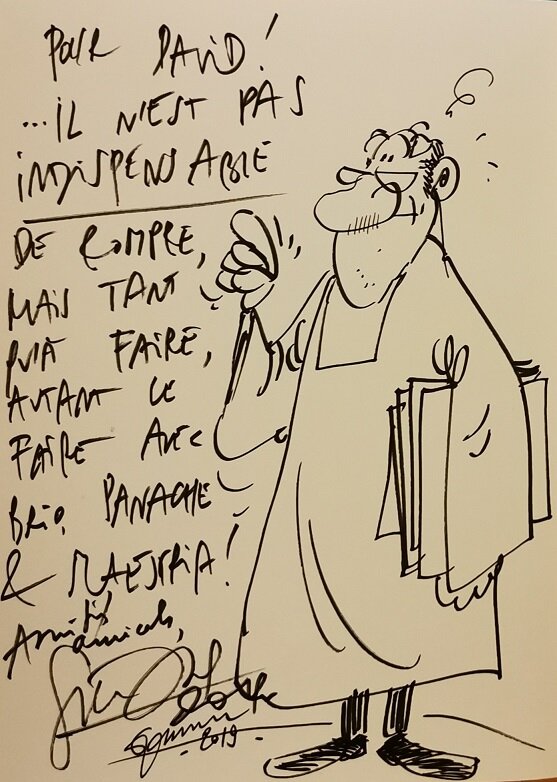 POUR DAVID!
...IL N'EST PAS
INDISPENSABLE
DE ROMPRE,
MAIS TANT
QU'À FAIRE,
AUTANT LE
FAIRE AVEC
BRIO, PANACHE
& MAESTRIA!
Amitiés
amicales,
2019